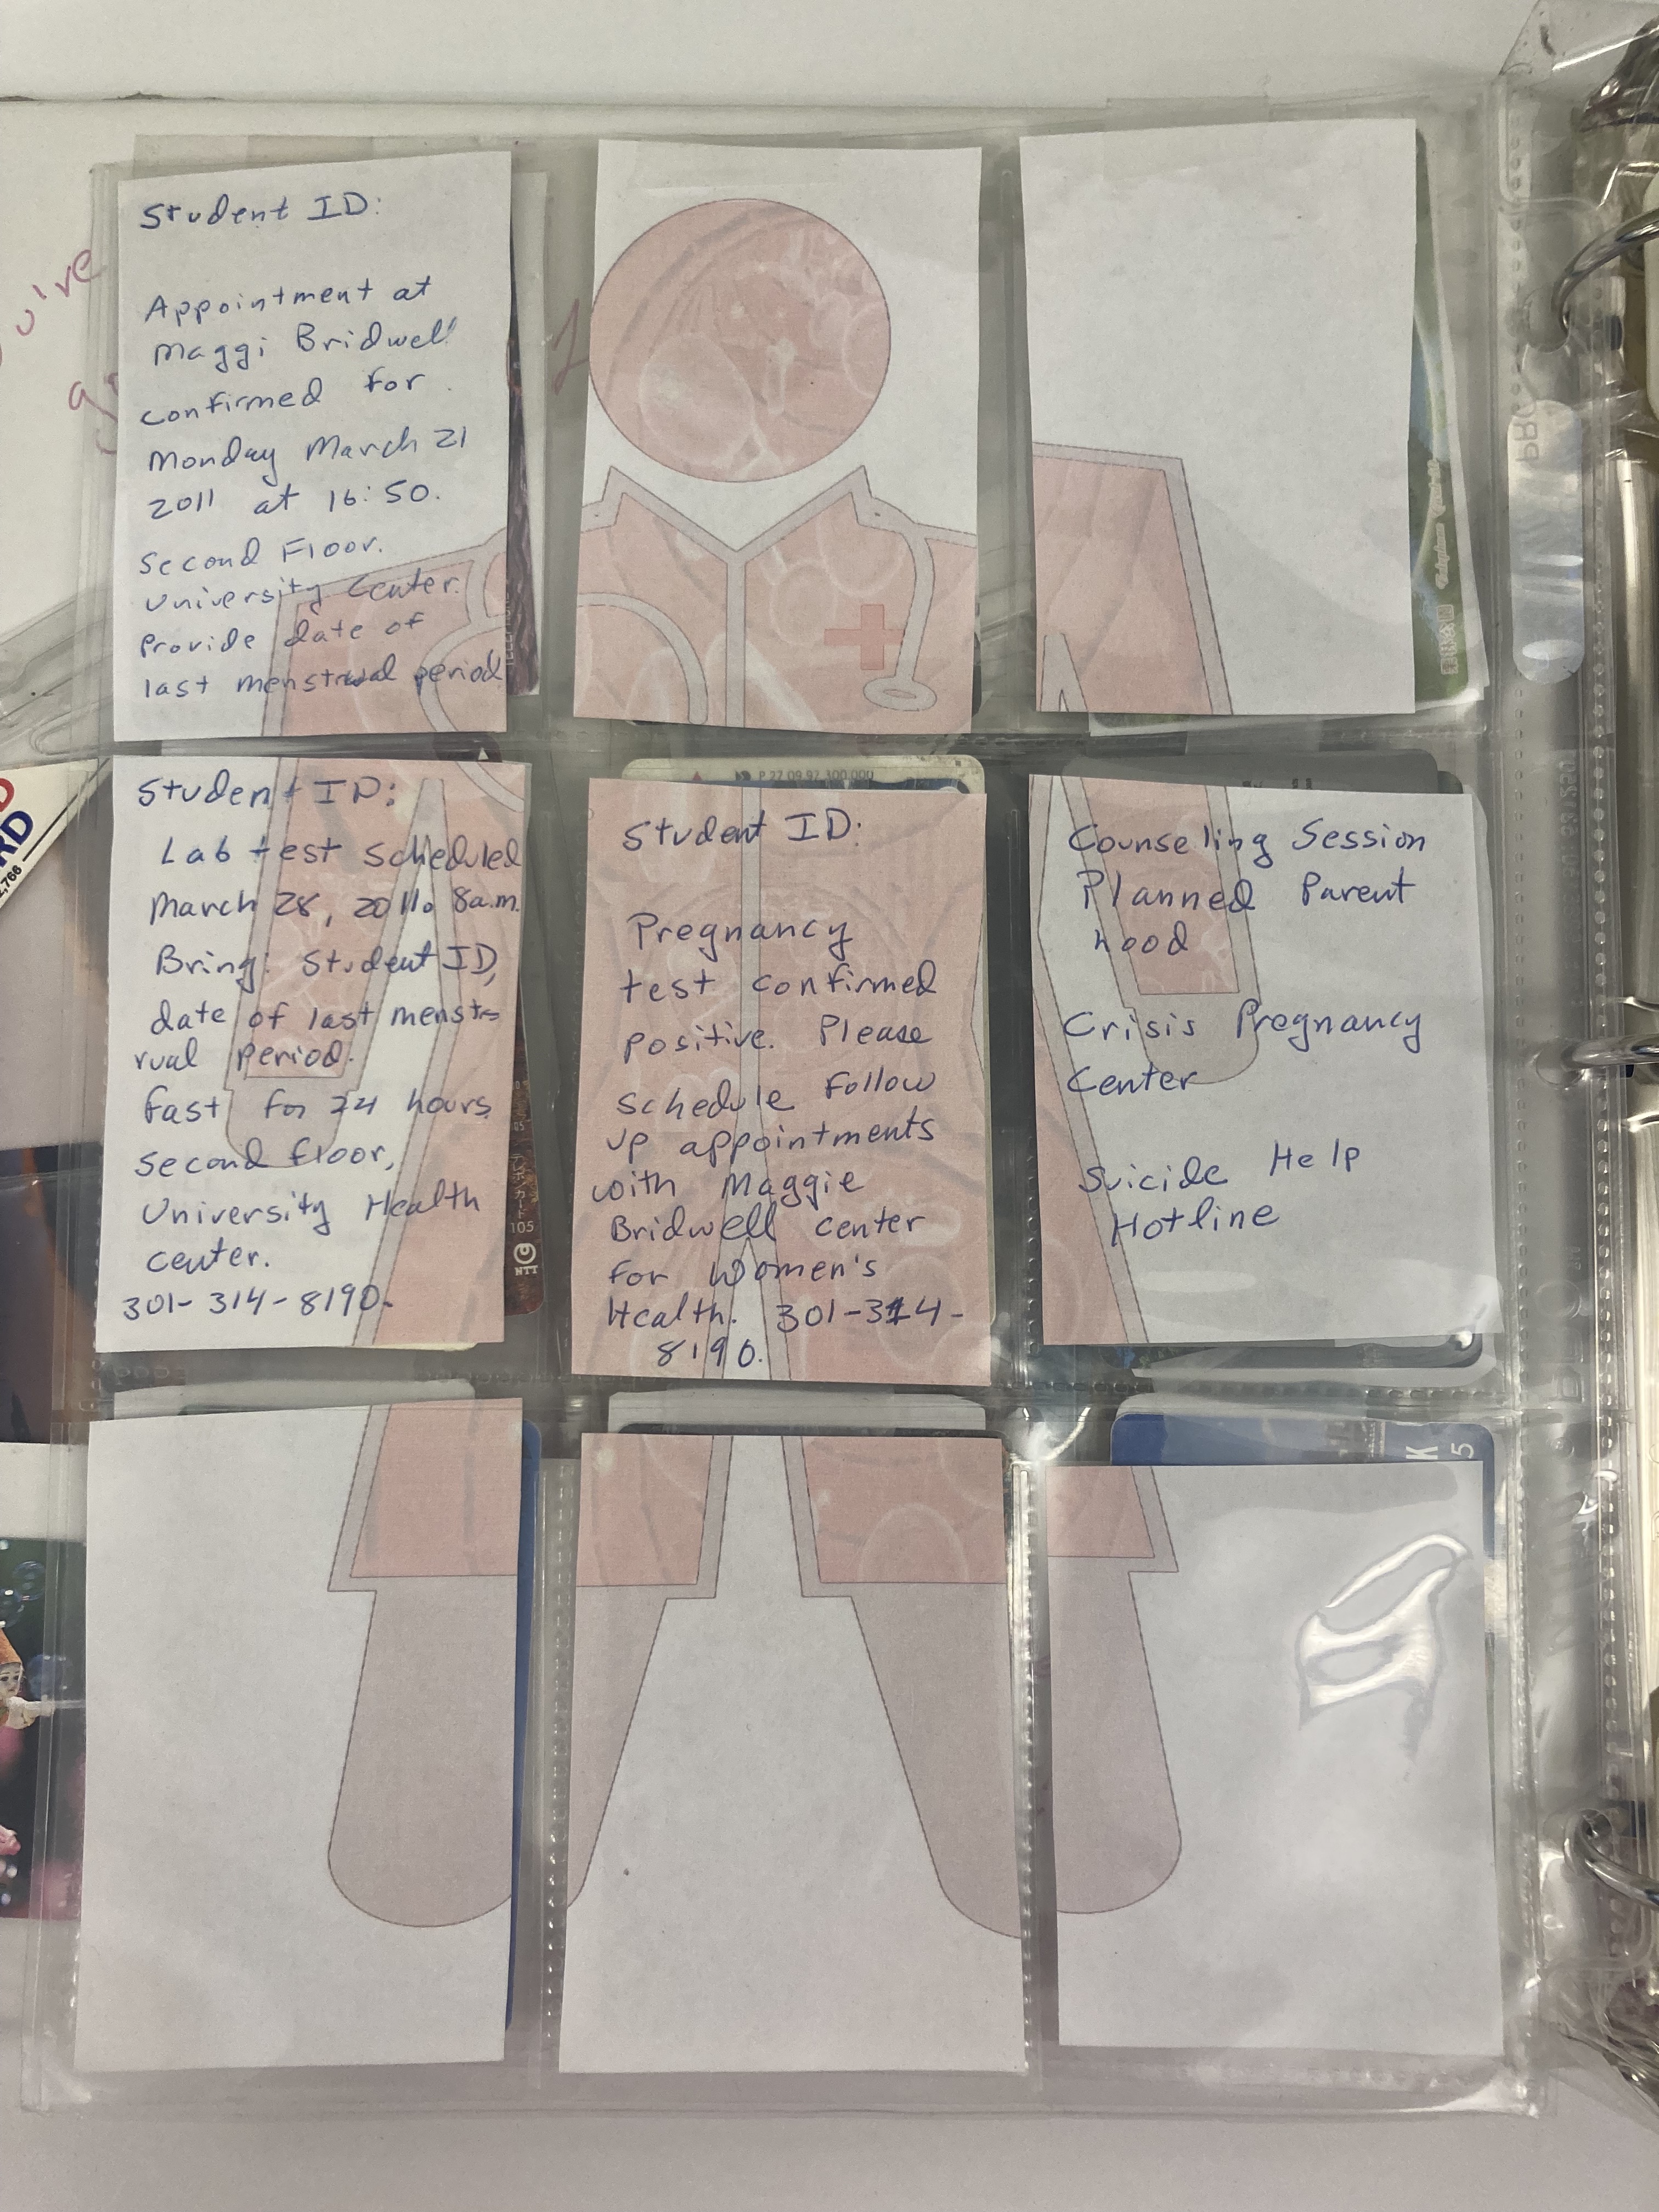 Student ID:
Appointment at
Maggi Bridwell
confirmed for
Monday March 21
2011 at 16:50.
Second Floor.
University Center.
Provide date of
last menstrual period
Student ID:
Lab test scheduled
March 28, 2011. 8a.m.
Bring: Student ID,
date of last menst-
rual period.
fast for 24 hours
second floor,
University Health
center.
301-314-8190.
Student ID:
Pregnancy
test confirmed
positive. Please
schedule follow
up appointments
with Maggie
Bridwell center
for Women's
Health. 301-314-
8190.
Counseling Session
Planned Parent
hood
Crisis Pregnancy
Center
Suicide Help
Hotline
P 27.09.97 300.000
テレホンカード
105
NTT
K
5
u're
RD